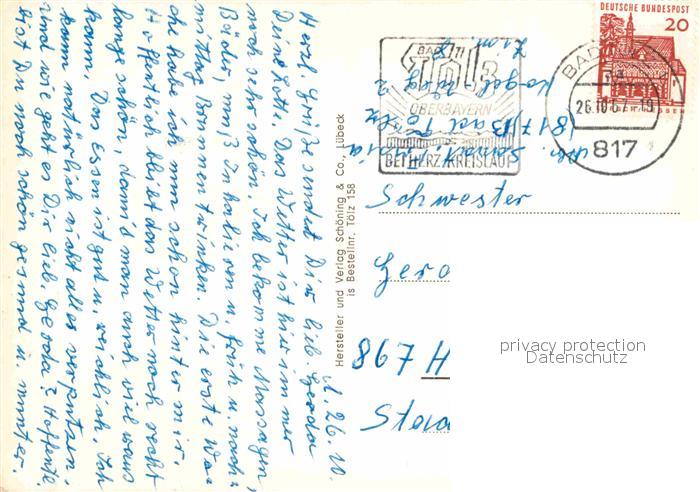 d. 26. 10.
Herzl. Grüße sendet Dir lieb Gerda
Deine Lote. Das Wetter ist hier immer
noch sehr schön. Ich bekomme Massagen,
Bäder, muß Inhalieren u. früh u. nach=
mittag Brunnen trinken. Die erste Wo=
che habe ich nun schon hinter mir.
Hoffentlich bleibt das Wetter noch recht
lange schön, damit man auch viel raus
kann. Das Essen ist gut u. reichlich. Ich
kann natürlich nicht alles verputzen.
Und wie geht es Dir lieb. Gerda? Hoffentl.
bist Du noch schön gesund u. munter.
Hersteller und Verlag Schöning & Co., Lübeck
is Bestellnr. Tölz 158
DEUTSCHE BUNDESPOST
20
BAD TÖLZ
26.10.67.-19
817
BAD TÖLZ
OBERBAYERN
BEI HERZ, KREISLAUF
817 Bad Tölz
Schwester
Gerd
867 H
Stad
privacy protection
Datenschutz